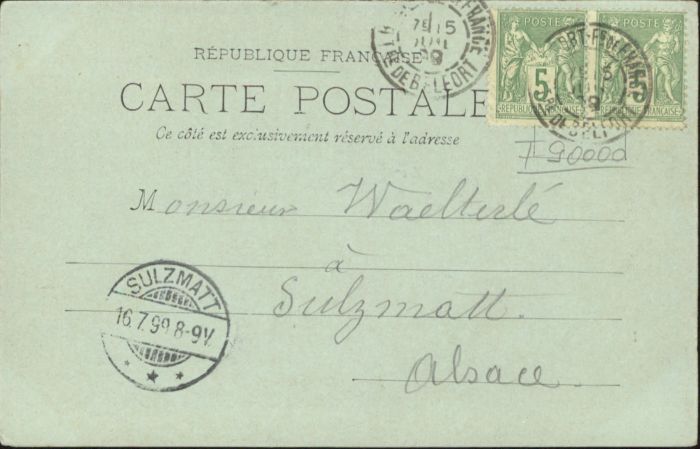 RÉPUBLIQUE FRANÇAISE
CARTE POSTALE
Ce côté est exclusivement réservé à l'adresse
POSTE POSTE
5 5
REPUBLIQUE FRANÇAISE REPUBLIQUE FRANÇAISE
FRANCE
15
99
DE BELFORT
F 90000
Monsieur Waelterlé
à
Sulzmatt.
Alsace.
SULZMATT
16.7.99 8-9V.